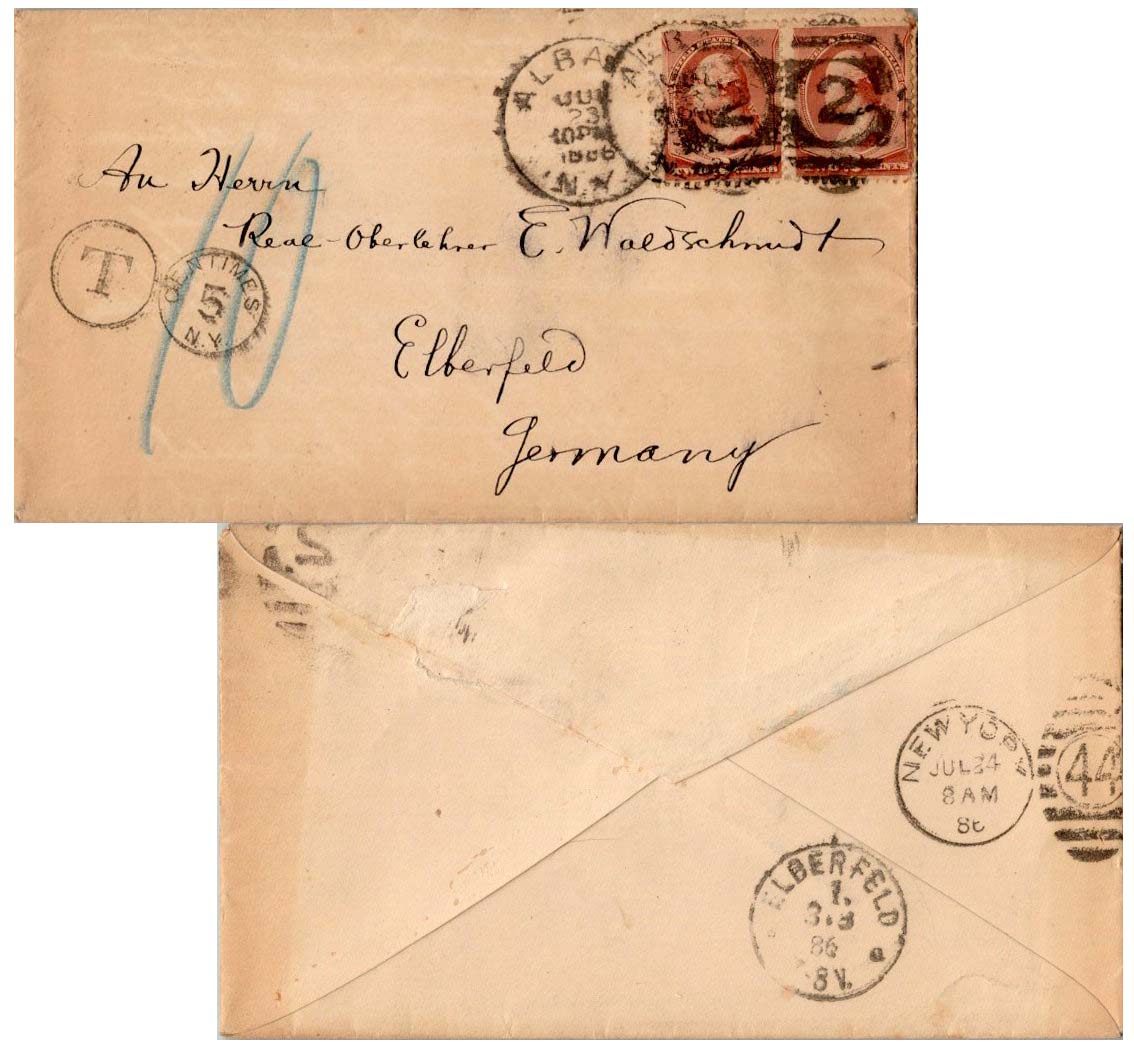 ALBA
JUL
23
10PM
1886
N.Y.
ALB
2
2
An Herrn
Real-Oberlehrer E. Waldschmidt
T
CENTIMES
5
N.Y.
10
Elberfeld
Germany
2
NEW YORK
JUL 24
8 AM
86
44
ELBERFELD
86
8 V.
a